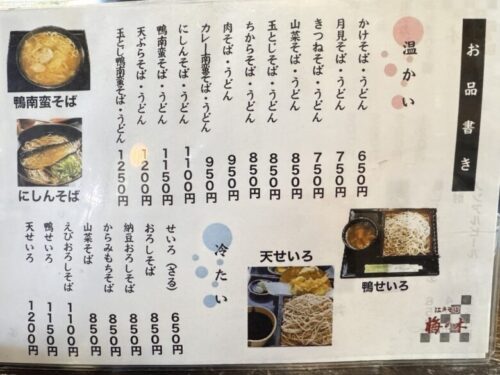 お品書き
温かい
かけそば・うどん 650円
月見そば・うどん 750円
きつねそば・うどん 750円
山菜そば・うどん 850円
玉とじそば・うどん 850円
ちからそば・うどん 850円
肉そば・うどん 950円
カレー南蛮そば・うどん 950円
にしんそば・うどん 1100円
鴨南蛮そば・うどん 1150円
天ぷらそば・うどん 1200円
玉とじ鴨南蛮そば・うどん 1250円
鴨南蛮そば
にしんそば
鴨せいろ
天せいろ
冷たい
せいろ（ざる） 650円
おろしそば 850円
納豆おろしそば 850円
からみもちそば 850円
山菜そば 850円
えびおろしそば 1100円
鴨せいろ 1150円
天せいろ 1200円